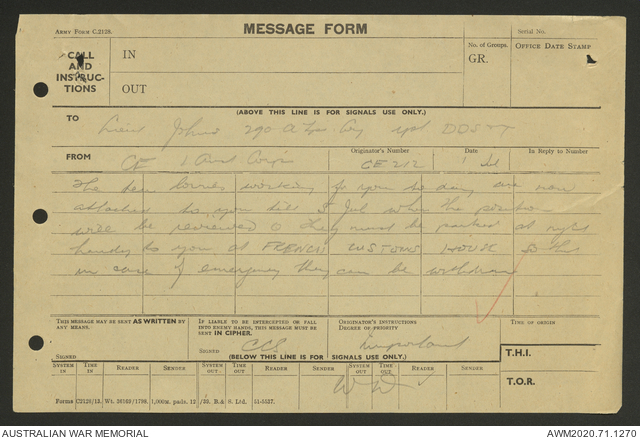 ARMY FORM C.2128.
MESSAGE FORM
Serial No.
CALL
AND
INSTRUC-
TIONS
IN
OUT
No. of Groups.
GR.
OFFICE DATE STAMP
(ABOVE THIS LINE IS FOR SIGNALS USE ONLY.)
TO
Lieut Johns 290 A Tps Coy rpt DDS&T
FROM
Originator's Number
Date
In Reply to Number
CE 1 Aust Corps
CE 212
1 Jul
The ten lorries working for you to day are now
attached to you till 5 Jul when the position
will be reviewed They must be parked at night
handy to you at FRENCH CUSTOMS HOUSE so that
in case of emergency they can be withdrawn
THIS MESSAGE MAY BE SENT AS WRITTEN BY
ANY MEANS.
SIGNED
IF LIABLE TO BE INTERCEPTED OR FALL
INTO ENEMY HANDS, THIS MESSAGE MUST BE
SENT IN CIPHER.
SIGNED
ORIGINATOR'S INSTRUCTIONS
DEGREE OF PRIORITY
Important
TIME OF ORIGIN
(BELOW THIS LINE IS FOR SIGNALS USE ONLY.)
T.H.I.
T.O.R.
SYSTEM IN
TIME IN
READER
SENDER
SYSTEM OUT.
TIME OUT.
READER
SENDER
SYSTEM OUT.
TIME OUT
READER
SENDER
Forms C2128/13. Wt. 36169/1799. 1,000M. pads. 12/39. B.& S. Ltd. 51-5527.
AUSTRALIAN WAR MEMORIAL
AWM2020.71.1270